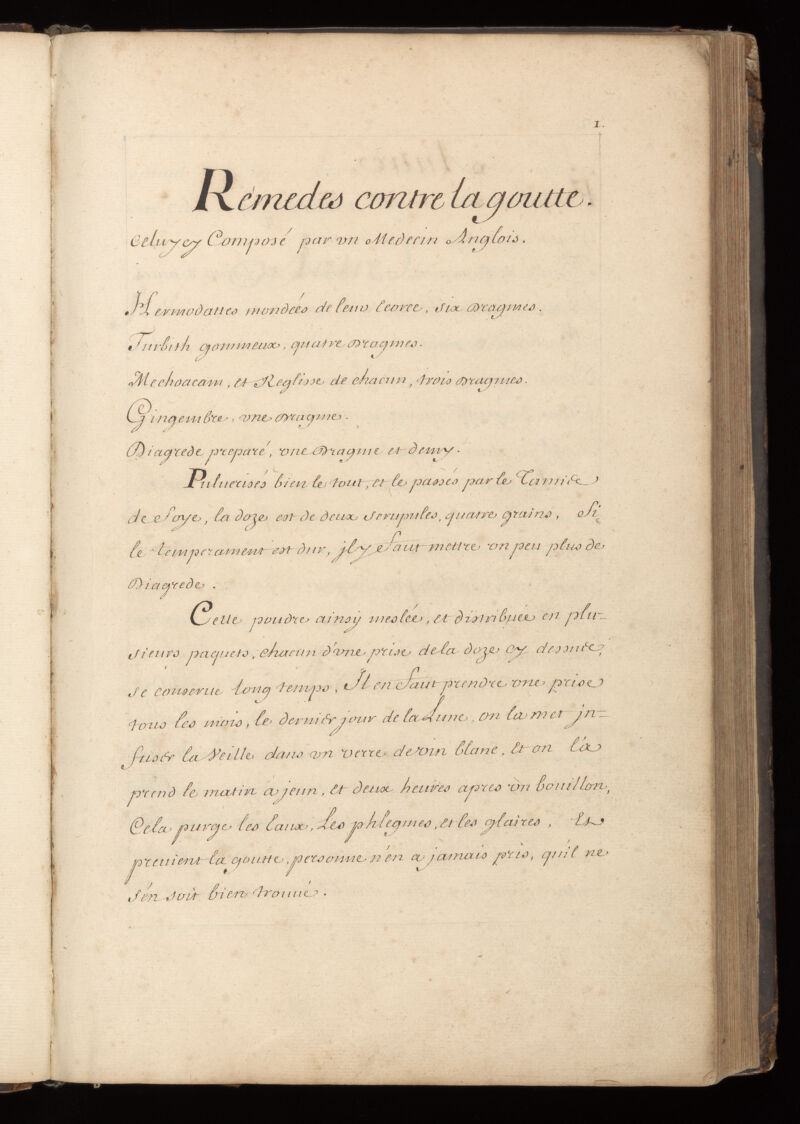 1.
Remedes contre la goutte.
Celuy cy Composé par vn Medecin Anglois.
Hermodattes mondées de leur Ecorce, six Dragmes.
Turbith gommeux, quatre Dragmes.
Mechoacam, et Reglisse de chacun, trois Dragmes.
Gingembre, vne Dragme.
Diagrede preparé, vne Dragme et demy.
Puluerisés bien le tout, et le passés par le Tamis
de Soye, la doze est de deux scrupules, quatre grains, Si
le temperament est dur, jl y faut mettre vn peu plus de
Diagrede.
Cette poudre ainsy meslée, et distribuée en plu-
sieurs paquets, chacun d'vne prise de la doze cy dessus,
se conserue long temps, Il en faut prendre vne prise
tous les mois, le dernier jour de la Lune, on la met jn-
fuser la Veille dans vn verre de vin blanc, et on la
prend le matin a jeun, et deux heures apres vn bouillon,
Cela purge les Eaux, Les phlegmes, et les glaires, Et
preuient la goutte, personne n'en a jamais pris, qu'il ne
s'en soit bien trouué.